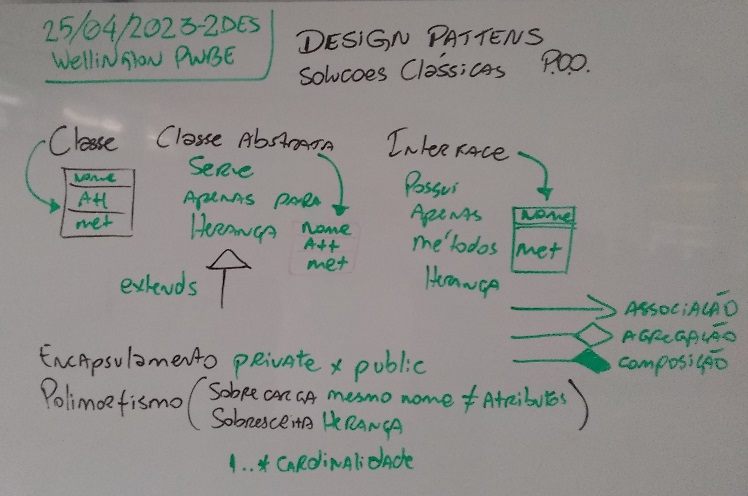 25/04/2023-2DES
Wellington PWBE
DESIGN PATTENS
Solucoes Clássicas P.O.O.
Classe
nome
Att
met
Classe Abstrata
Serve
Apenas para
Herança
nome
Att
met
extends
Interface
Possui
Apenas
métodos
Herança
nome
met
Associação
Agregação
Composição
Encapsulamento private x public
Polimorfismo (Sobrecarga mesmo nome ≠ Atributos)
Sobrescrita Herança
1..* Cardinalidade